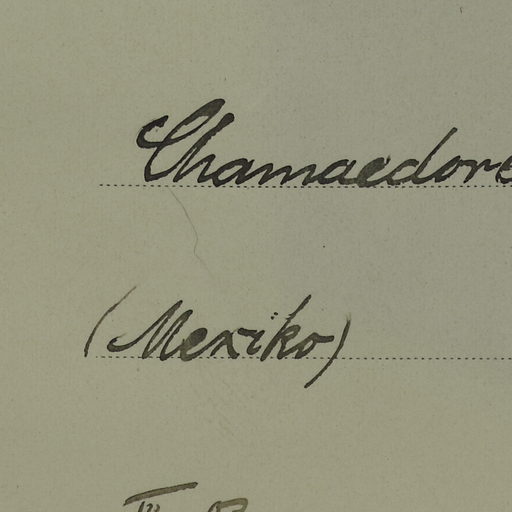 Chamaedore
(Mexiko)